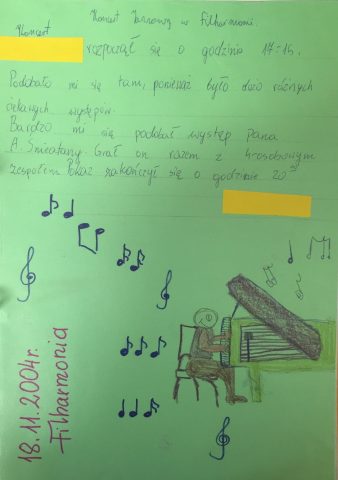 Koncert Jazzowy w Filharmonii
Koncert
rozpoczął się o godzinie 17:15.
Podobało mi się tam, ponieważ było dużo różnych
ciekawych występów.
Bardzo mi się podobał występ Pana
A. Śmietany. Grał on razem z 4-osobowym
zespołem. Pokaz zakończył się o godzinie 20
18.11.2004r.
Filharmonia